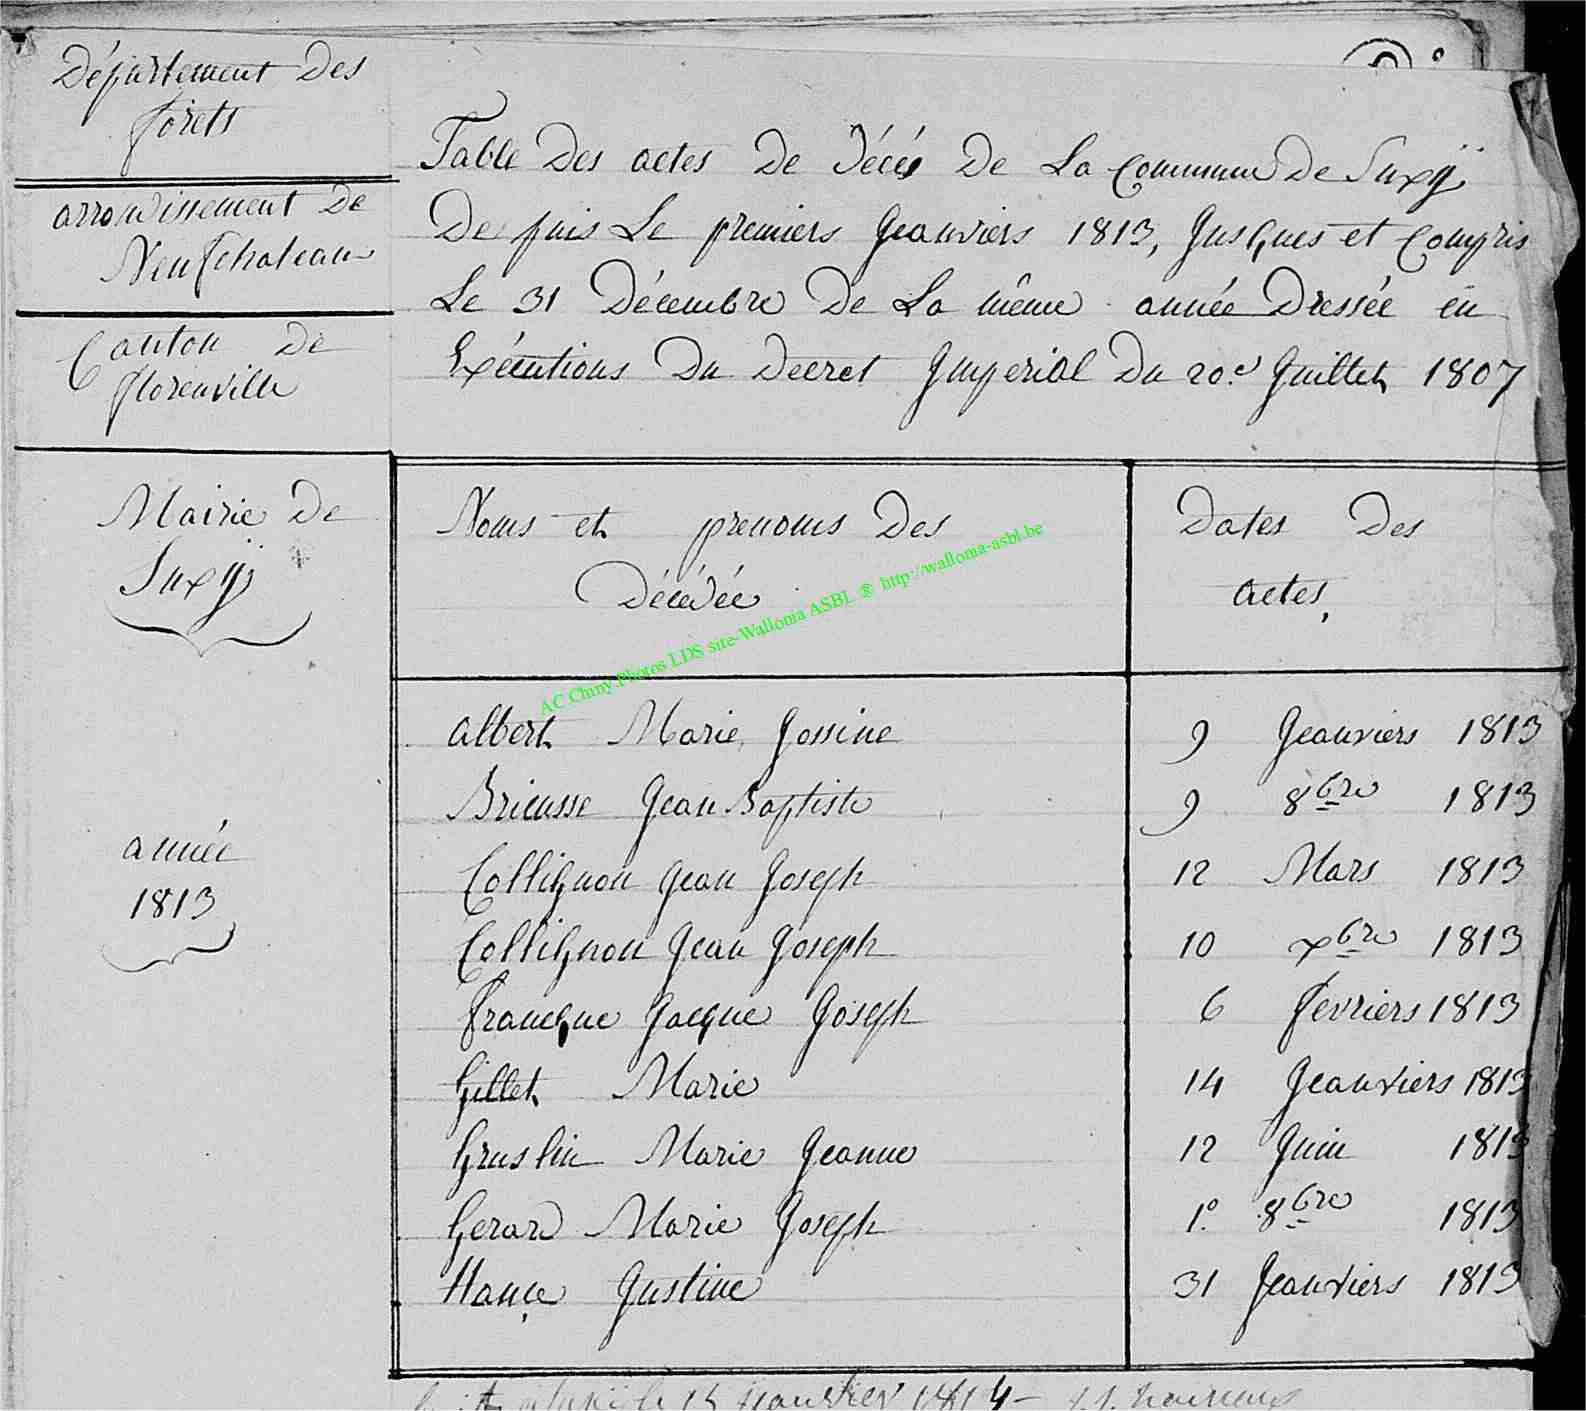 Département Des
forets
arrondissement De
Neufchateau
Canton De
florenville
Mairie De
Suxÿ
année
1813
Table Des actes De Décés De La Commune De Suxÿ
Depuis Le premiers Jeanviers 1813, Jusques et Compris
Le 31 Décembre De La même année Dressée en
Exécutions Du Decret Imperial Du 20.e Juillet 1807
Noms et prenoms Des
Décédée
Dates Des
actes,
AC Chiny Photos LDS site-Wallonia ASBL ® http://wallonia-asbl.be
albert Marie Jossine 9 Jeanviers 1813
Bricusse Jean Baptiste 9 8bre 1813
Collignon Jean Joseph 12 Mars 1813
Collignon Jean Joseph 10 xbre 1813
francque Jacque Joseph 6 fevriers 1813
Gillet Marie 14 Jeanviers 1813
Gruslin Marie Jeanne 12 Juin 1813
Gerard Marie Joseph 1º 8bre 1813
Hance Justine 31 Jeanviers 1813
15 Jeanvier 1814